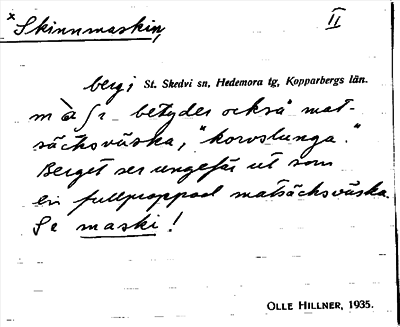 × Skinnmaskin, II
berg; St. Skedvi sn, Hedemora tg, Kopparbergs län.
betyder också mat-
säcksväska, "korvslunga."
Berget ser ungefär ut som
en fullproppad matsäcksväska.
Se maski!
OLLE HILLNER, 1935.